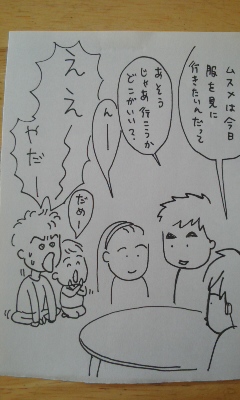 ムスメは今日
服を見に
行きたいんだって
あそう
じゃあ行こうか
どこがいい？
んーー
ええー
やだー
だめー